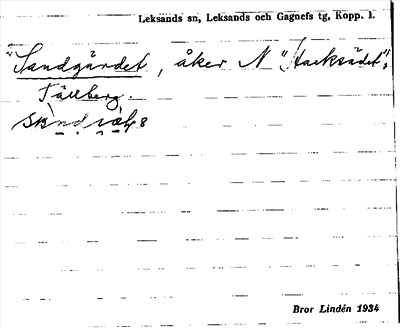 Leksands sn, Leksands och Gagnefs tg, Kopp. l.
"Sandgärdet, åker N "Hacksädet",
Tällberg.
Bror Lindén 1934